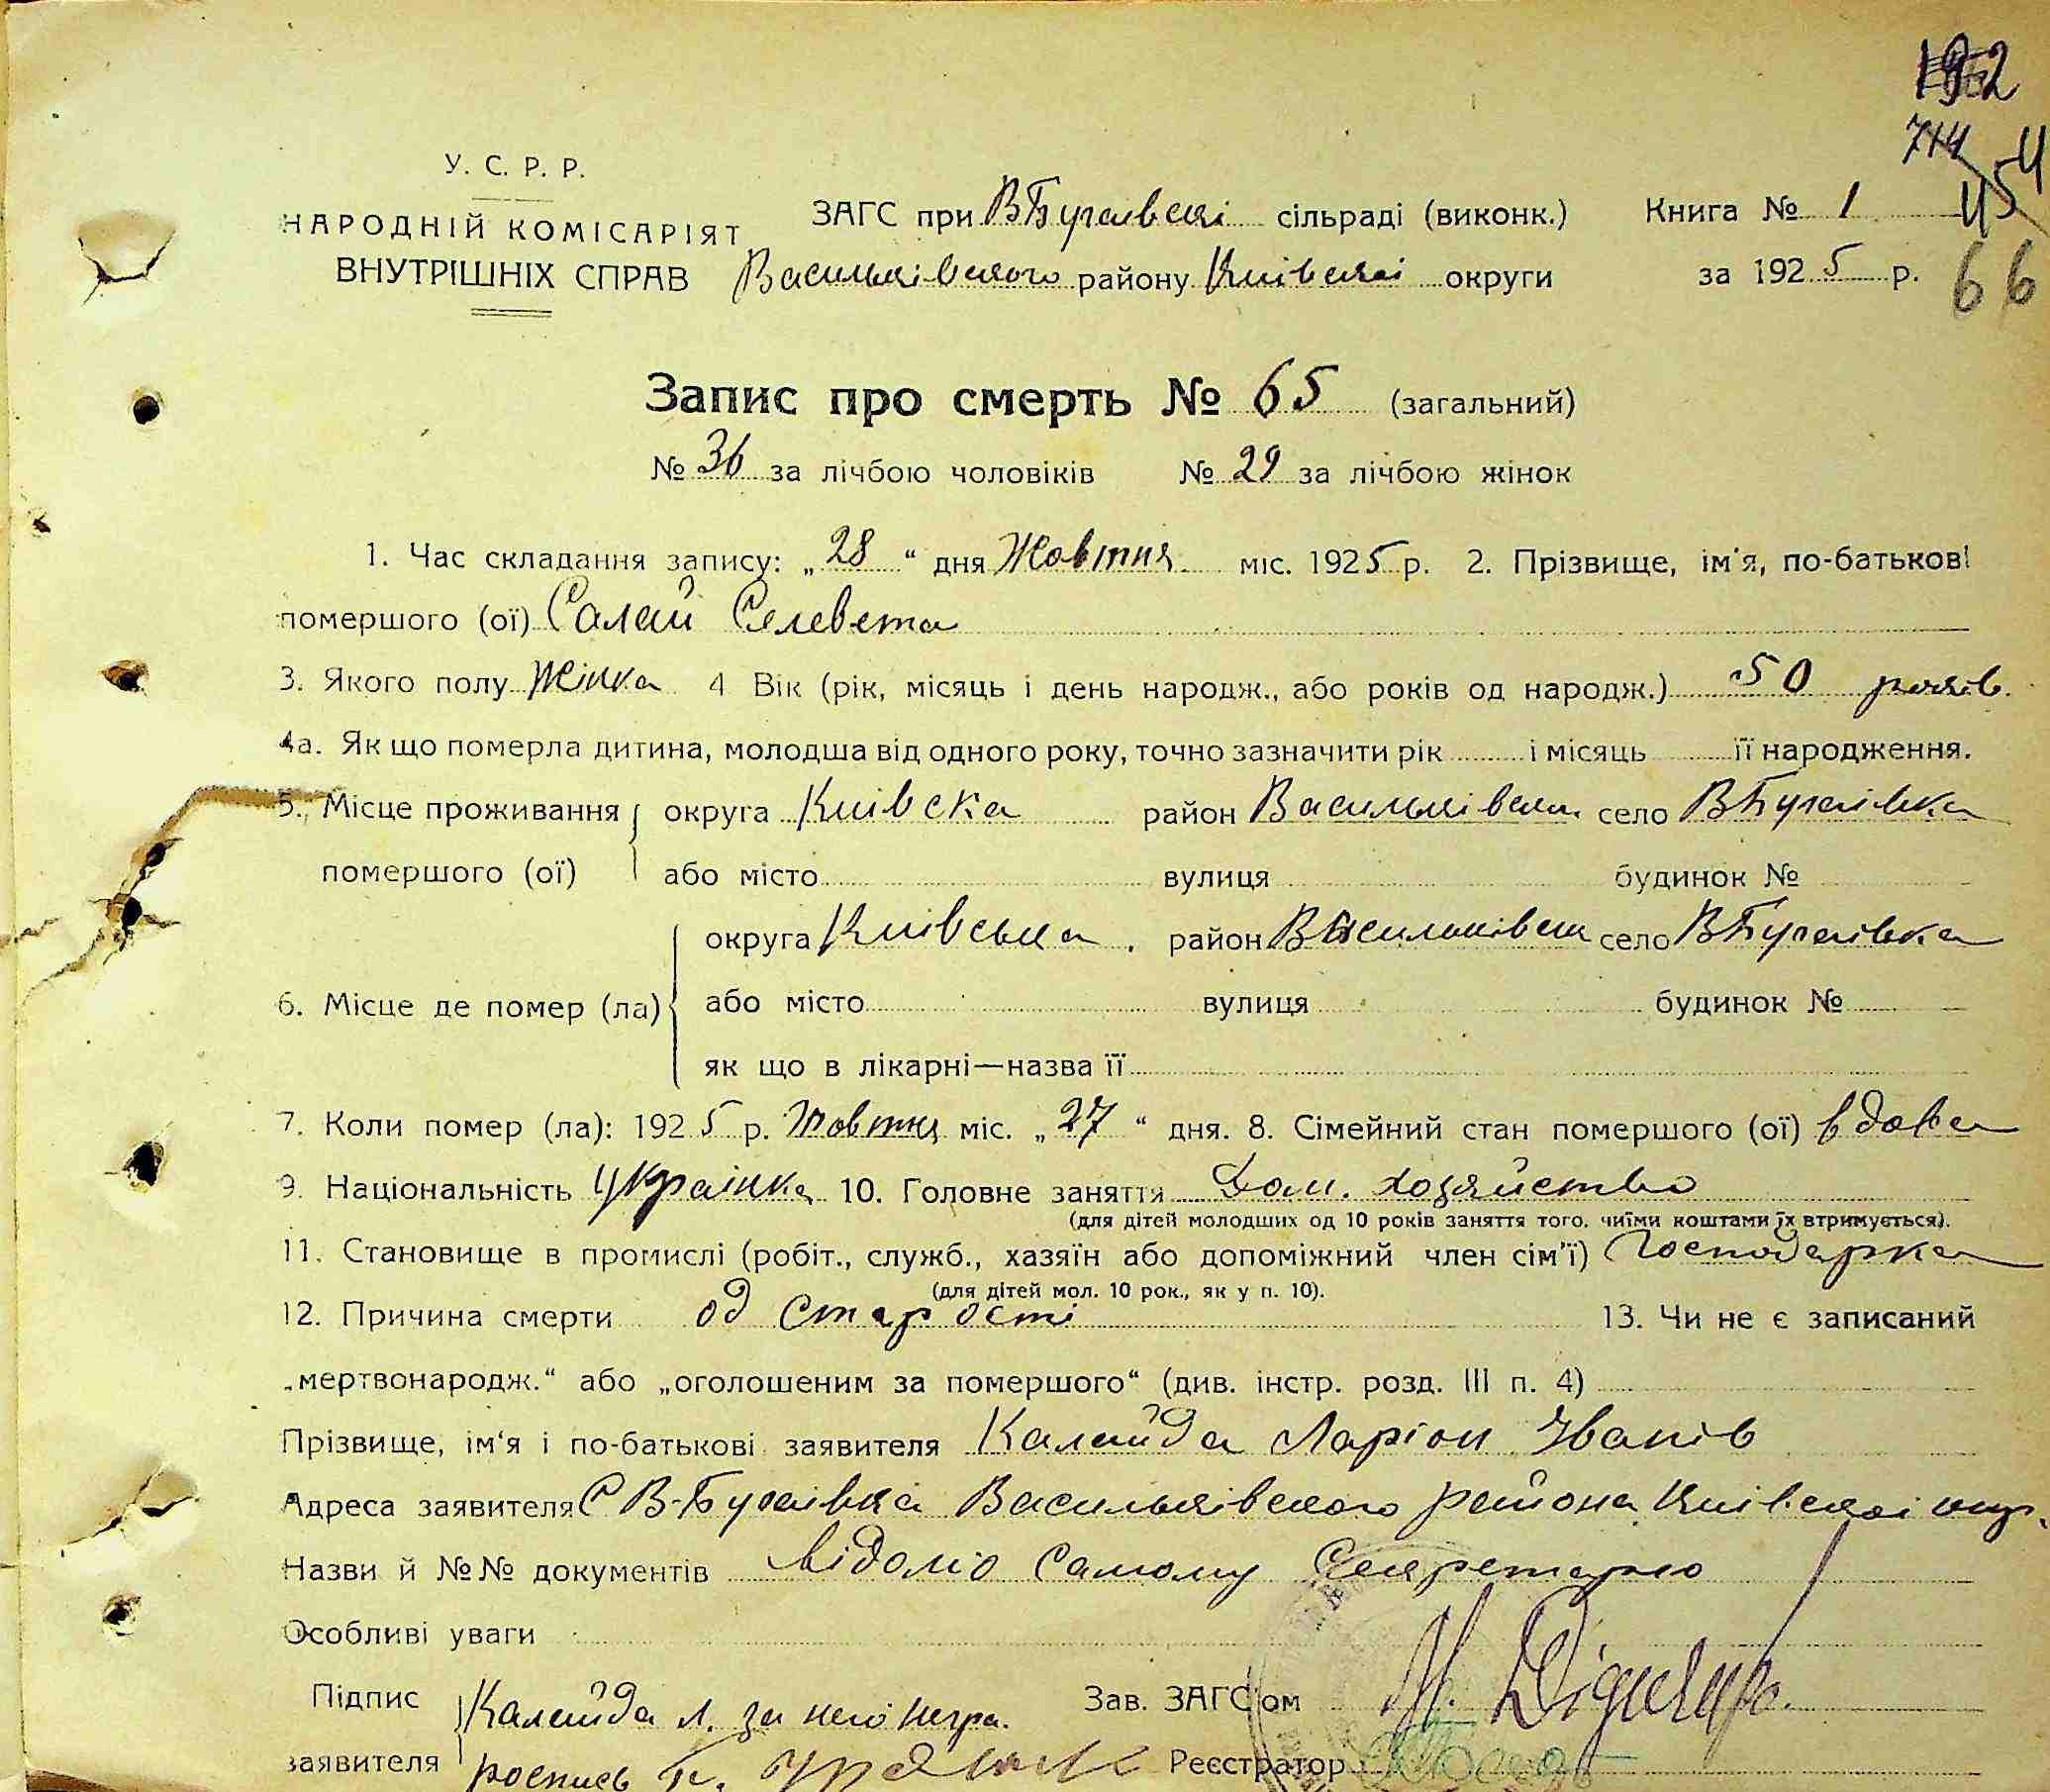 192
714
454
У. С. Р. Р.
НАРОДНІЙ КОМІСАРІЯТ
ВНУТРІШНІХ СПРАВ
ЗАГС при ВБугаївскі сільраді (виконк.) Книга № 1
Васильківського району Київскої округи за 1925 р. 66
Запис про смерть № 65 (загальний)
№ 36 за лічбою чоловіків № 29 за лічбою жінок
1. Час складання запису: „28“ дня Жовтня міс. 1925 р. 2. Прізвище, ім'я, по-батькові
помершого (ої) Салай Селевета
3. Якого полу Жінка 4 Вік (рік, місяць і день народж., або років од народж.) 50 років.
4а. Як що померла дитина, молодша від одного року, точно зазначити рік і місяць її народження.
5. Місце проживання округа Київска район Васильківськ. село ВБугаївка
помершого (ої) або місто вулиця будинок №
округа Київська район Васильківськ село ВБугаївка
6. Місце де помер (ла) або місто вулиця будинок №
як що в лікарні—назва її
7. Коли помер (ла): 1925 р. Жовтня міс. „27“ дня. 8. Сімейний стан помершого (ої) вдова
9. Національність Українка 10. Головне заняття Дом. хозяйство
(для дітей молодших од 10 років заняття того, чиїми коштами їх втримується).
11. Становище в промислі (робіт., служб., хазяїн або допоміжний член сім'ї) Господарка
(для дітей мол. 10 рок., як у п. 10).
12. Причина смерти од старости 13. Чи не є записаний
„мертвонародж.“ або „оголошеним за помершого“ (див. інстр. розд. III п. 4)
Прізвище, ім'я і по-батькові заявителя Калайда Ларіон Іванів
Адреса заявителя С В-Бугаївка Васильківского района Київскої окр.
Назви й №№ документів відомо самому секретарю
Особливі уваги
Підпис Калайда Л. за него негра. Зав. ЗАГС'ом
заявителя роспись Реєстратор